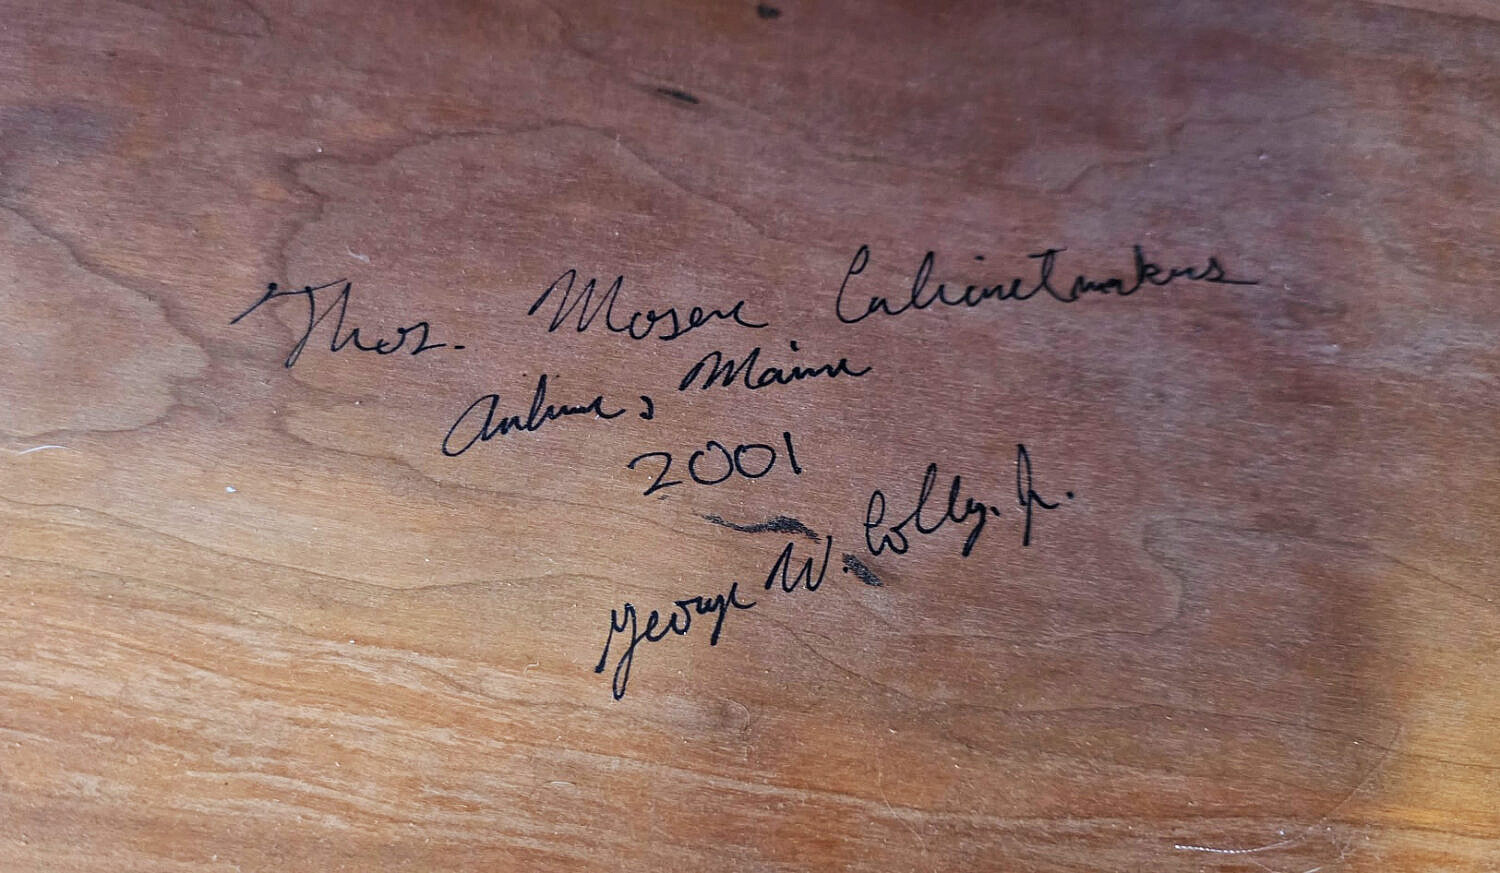 Thos. Moser Cabinetmakers
Auburn, Maine
2001
George W. Colby. Jr.